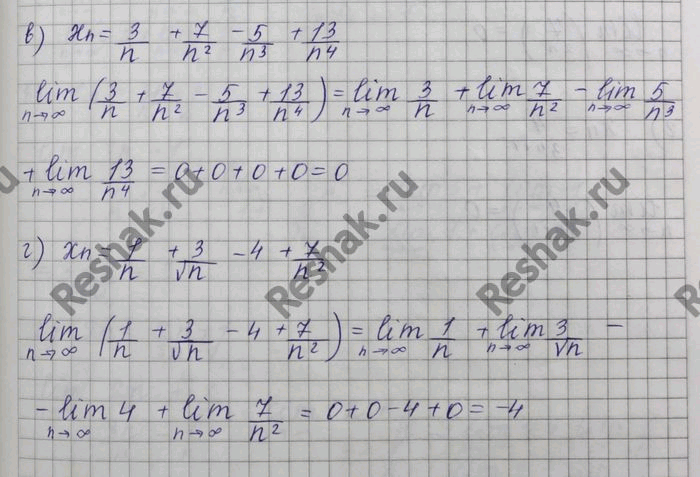 в) xn = 3/n + 7/n² - 5/n³ + 13/n⁴
lim n→∞ (3/n + 7/n² - 5/n³ + 13/n⁴) = lim n→∞ 3/n + lim n→∞ 7/n² - lim n→∞ 5/n³
+ lim n→∞ 13/n⁴ = 0 + 0 + 0 + 0 = 0
г) xn = 1/n + 3/√n - 4 + 7/n²
lim n→∞ (1/n + 3/√n - 4 + 7/n²) = lim n→∞ 1/n + lim n→∞ 3/√n -
- lim n→∞ 4 + lim n→∞ 7/n² = 0 + 0 - 4 + 0 = -4
Reshak.ru
Reshak.ru
Reshak.ru